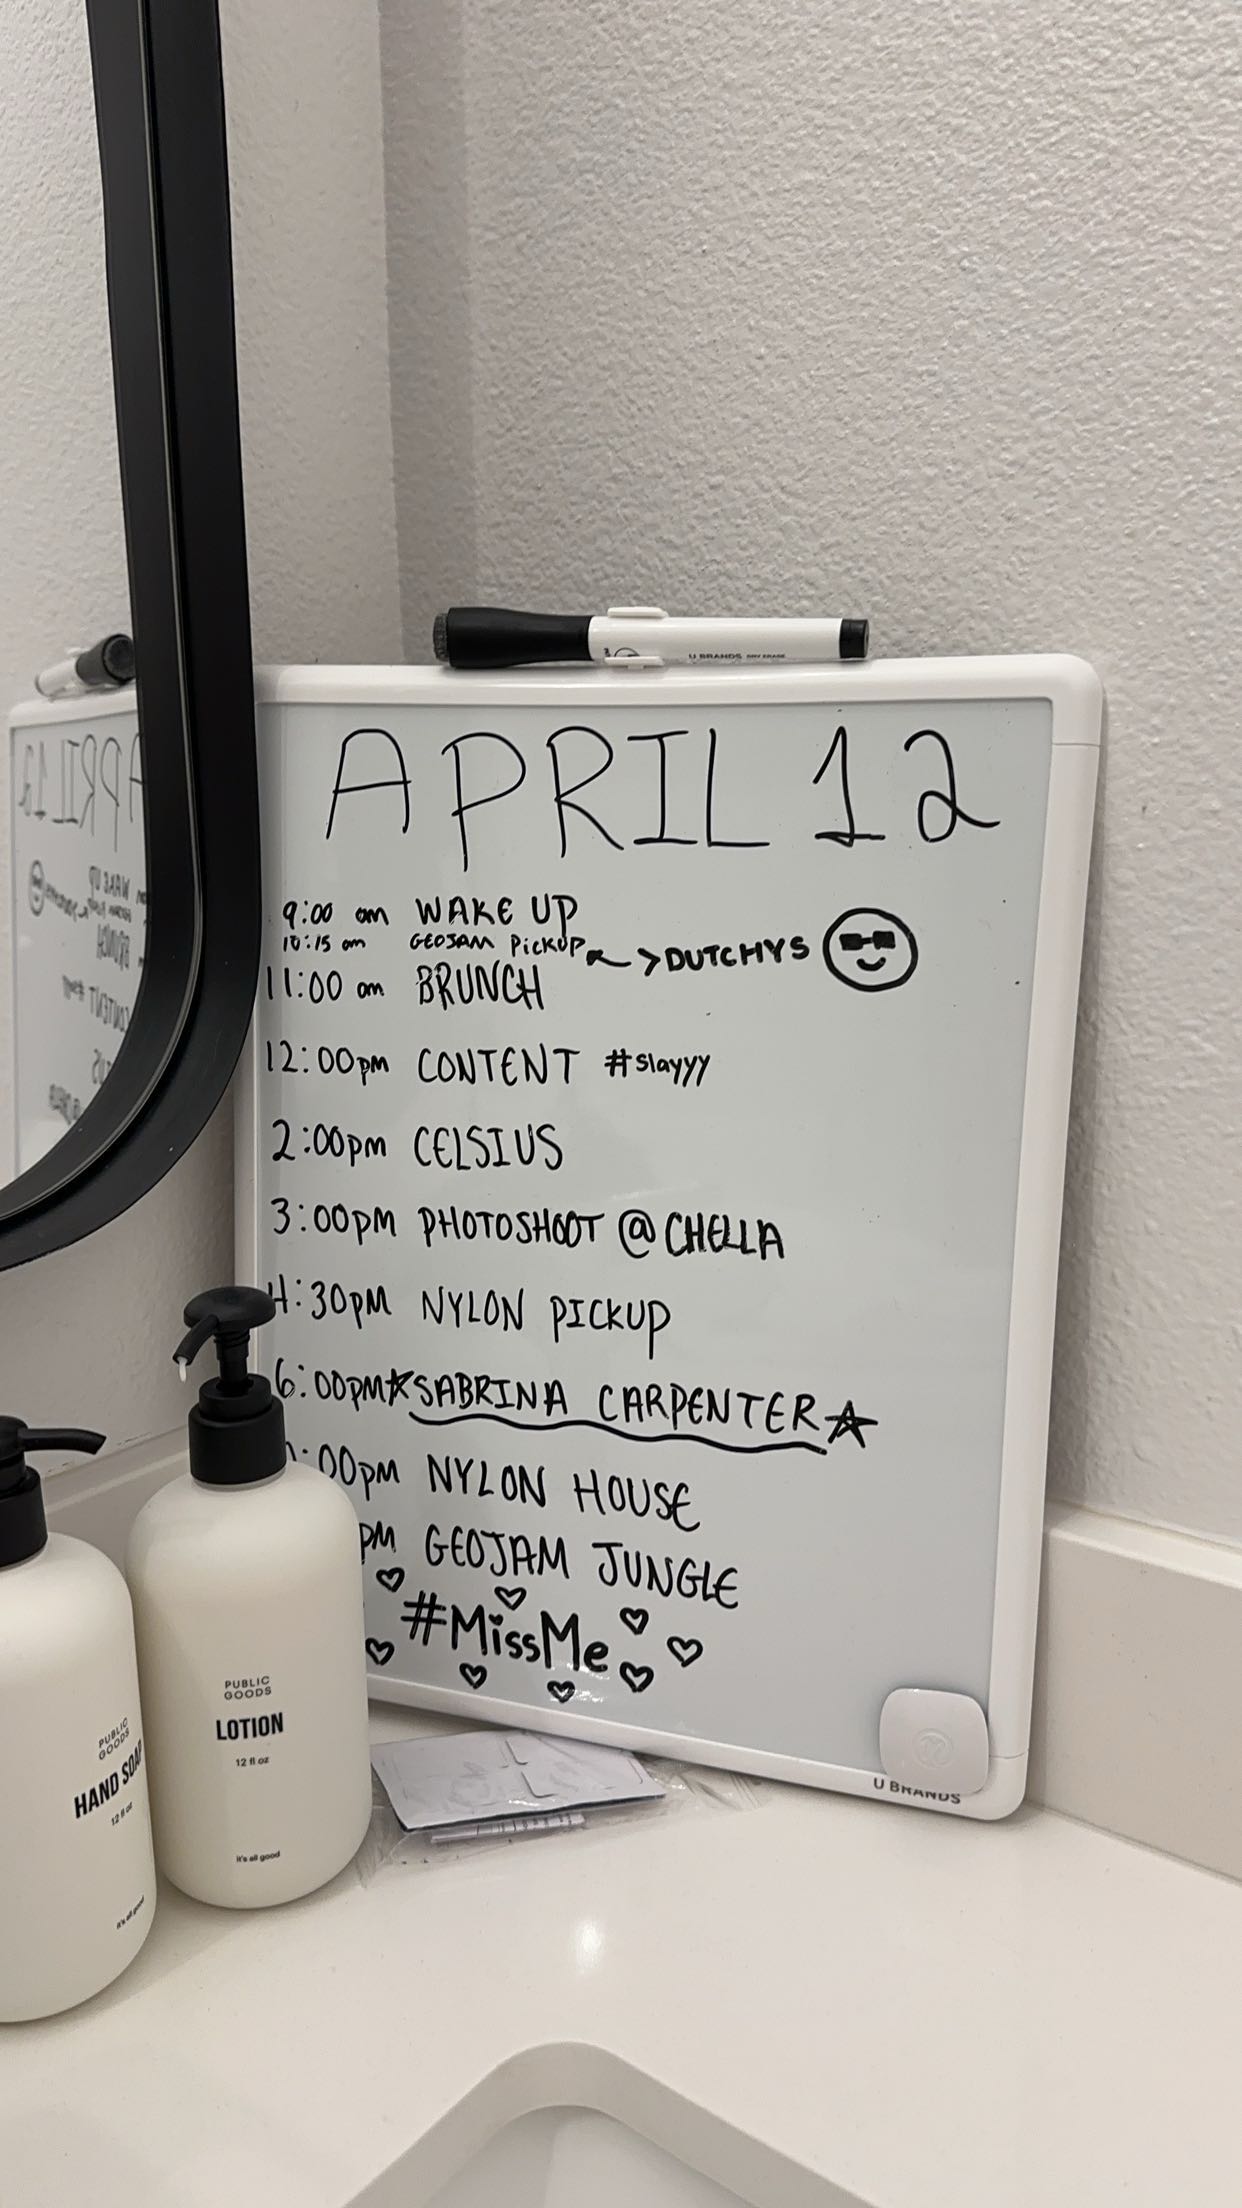 U BRANDS DRY ERASE
APRIL 12
9:00 am WAKE UP
10:15 am GEOJAM PICKUP > DUTCHYS
11:00 am BRUNCH
12:00pm CONTENT #slayyy
2:00pm CELSIUS
3:00pm PHOTOSHOOT @ CHELLA
4:30pm NYLON PICKUP
6:00pm SABRINA CARPENTER
:00pm NYLON HOUSE
pm GEOJAM JUNGLE
#MissMe
U BRANDS
PUBLIC
GOODS
LOTION
12 fl oz
it's all good
PUBLIC
GOODS
HAND SOAP
12 fl oz
it's all good